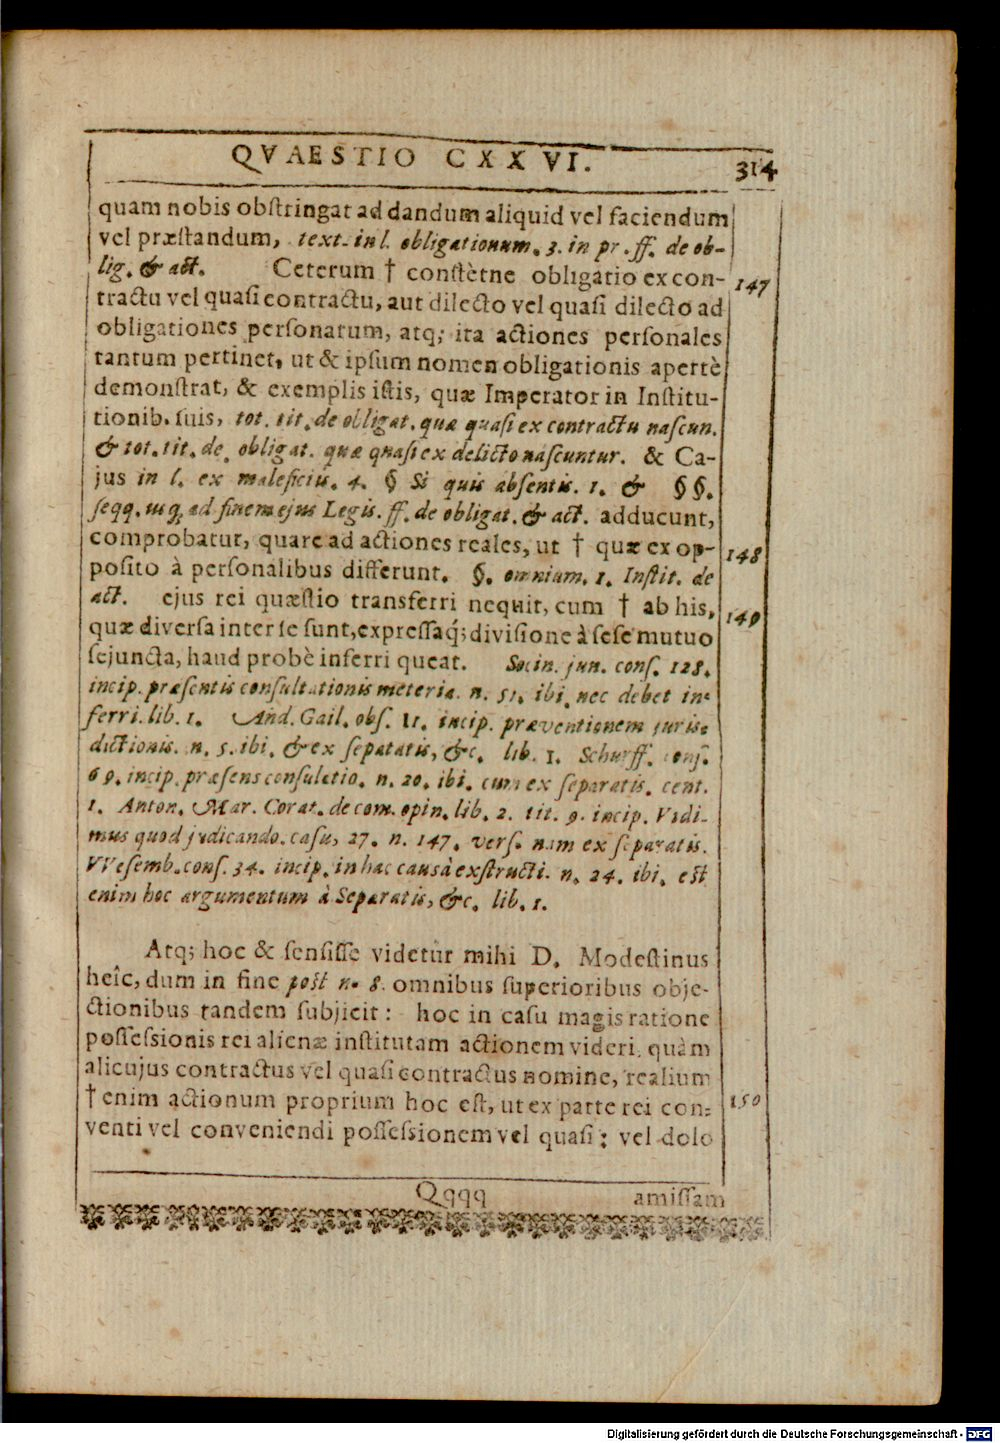 QVAESTIO CXXVI.
314
quam nobis obstringat ad dandum aliquid vel faciendum
vel præstandum, text. in l. obligationum. 3. in pr. ff. de ob-
lig. & act. Ceterum † constètne obligatio ex con-
147
tractu vel quasi contractu, aut dilecto vel quasi dilecto ad
obligationes personarum, atq; ita actiones personales
tantum pertinet, ut & ipsum nomen obligationis apertè
demonstrat, & exemplis istis, quæ Imperator in Institu-
tionib. suis, tot. tit. de obligat. quæ quasi ex contractu nascun.
& tot. tit. de. obligat. quæ quasi ex delicto nascuntur. & Ca-
jus in l. ex maleficiis. 4. § Si quis absentis. 1. & §§.
seqq. usq; ad finem ejus Legis. ff. de obligat. & act. adducunt,
comprobatur, quare ad actiones reales, ut † quæ ex op-
148
posito à personalibus differunt. §. omnium. 1. Instit. de
act. ejus rei quæstio transferri nequit, cum † ab his,
149
quæ diversa inter se sunt, expressaq́; divisione à sese mutuo
sejuncta, haud probè inferri queat. Socin. jun. cons. 128.
incip. præsentis consultationis meteria. n. 51. ibi. nec debet in-
ferri. lib. 1. And. Gail. obs. 11. incip. præventionem juris-
dictionis. n. 5. ibi. & ex sepatatis, &c. lib. 1. Schurff. cons.
69. incip. præsens consulatio. n. 20. ibi. cum ex separatis. cent.
1. Anton. Mar. Corat. de com. opin. lib. 2. tit. 9. incip. Vidi-
mus quod judicando. casu, 27. n. 147. vers. nam ex separatis.
VVesemb. cons. 34. incip. in hac causà exstructi. n. 24. ibi. est
enim hoc argumentum à Separatis, &c. lib. 1.
Atq; hoc & sensisse videtur mihi D. Modestinus
heîc, dum in fine post n. 8. omnibus superioribus obje-
ctionibus tandem subjicit: hoc in casu magis ratione
possessionis rei alienæ institutam actionem videri, quàm
alicujus contractus vel quasi contractus nomine, realium
† enim actionum proprium hoc est, ut ex parte rei con-
150
venti vel conveniendi possessionem vel quasi; vel dolo
Qqqq
amissam
Digitalisierung gefördert durch die Deutsche Forschungsgemeinschaft - DFG